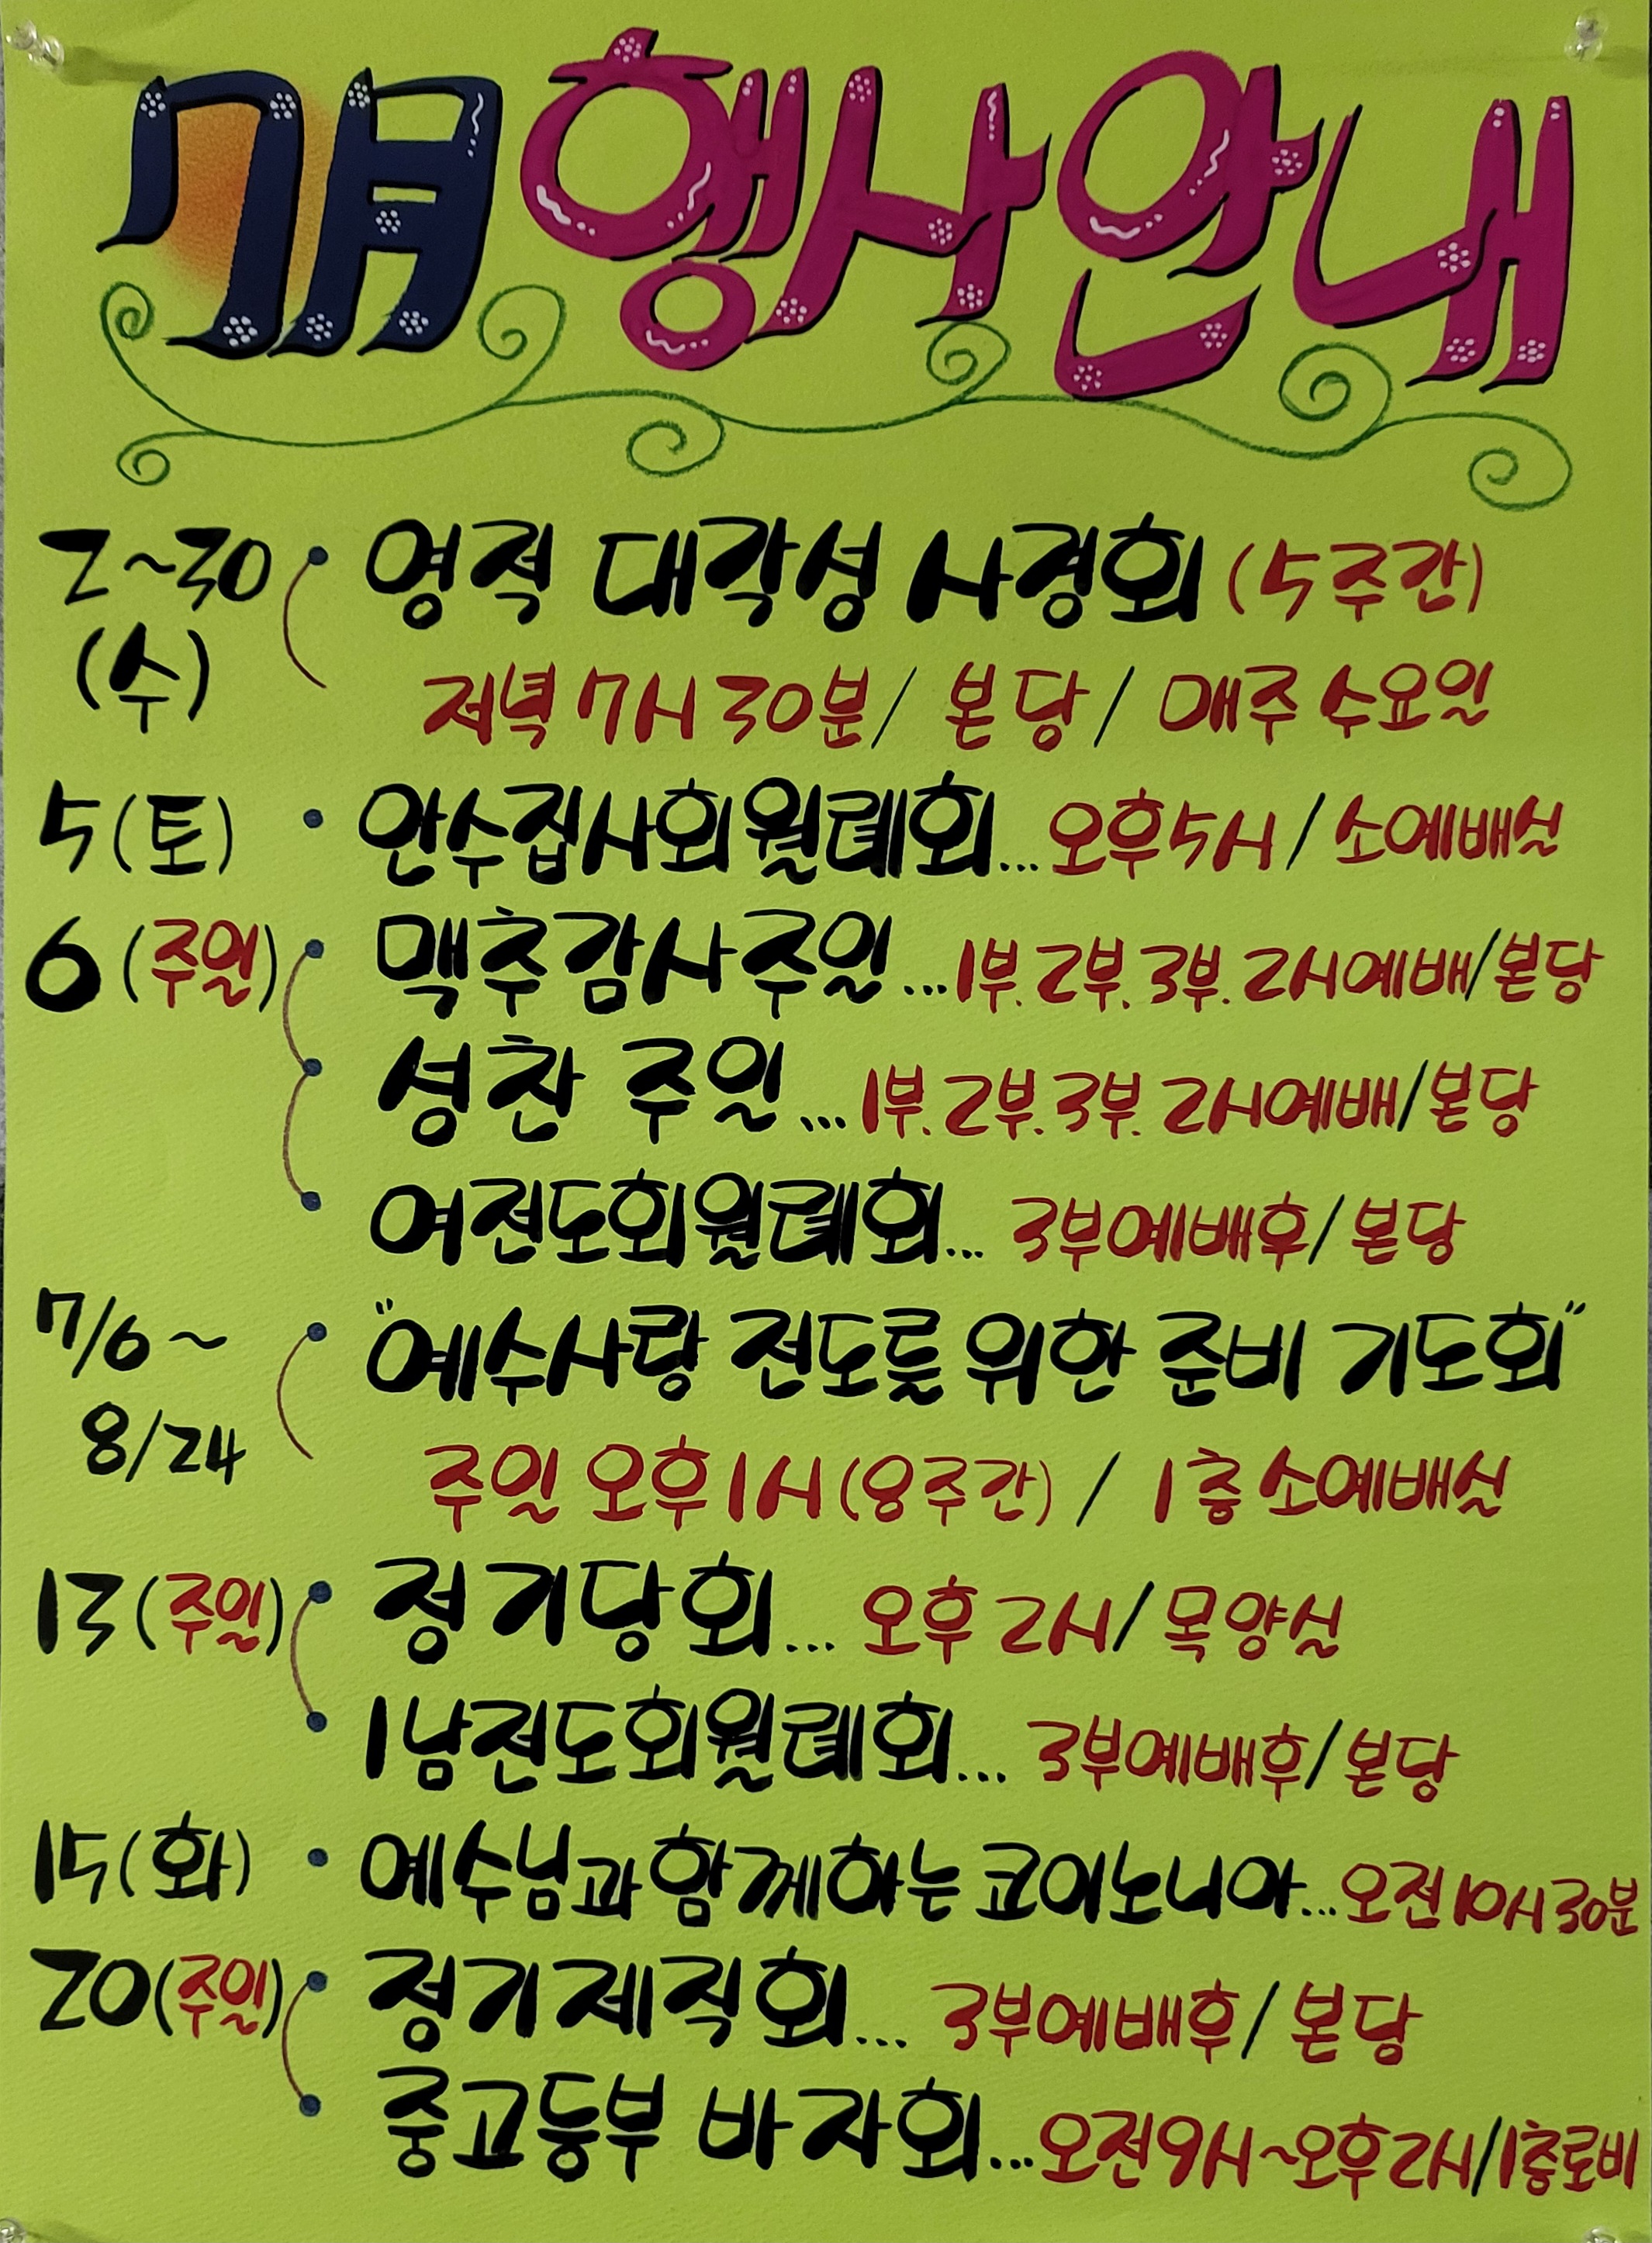 7月 행사안내
2~30 • 영적 대각성 사경회 (5주간)
(수) 저녁 7시 30분 / 본당 / 매주 수요일
5(토) • 안수집사회월례회... 오후5시 / 소예배실
6(주일) • 맥추감사주일...1부.2부.3부.2시예배/본당
• 성찬 주일...1부.2부.3부.2시예배/본당
• 여전도회월례회... 3부예배후/본당
7/6~ • "예수사랑 전도를 위한 준비 기도회"
8/24 주일 오후1시(8주간) / 1층 소예배실
13(주일) • 정기당회... 오후 2시/목양실
• 1남전도회월례회... 3부예배후/본당
15(화) • 예수님과 함께하는 코이노니아...오전10시30분
20(주일) • 정기제직회... 3부예배후/본당
• 중고등부 바자회...오전9시~오후2시/1층로비